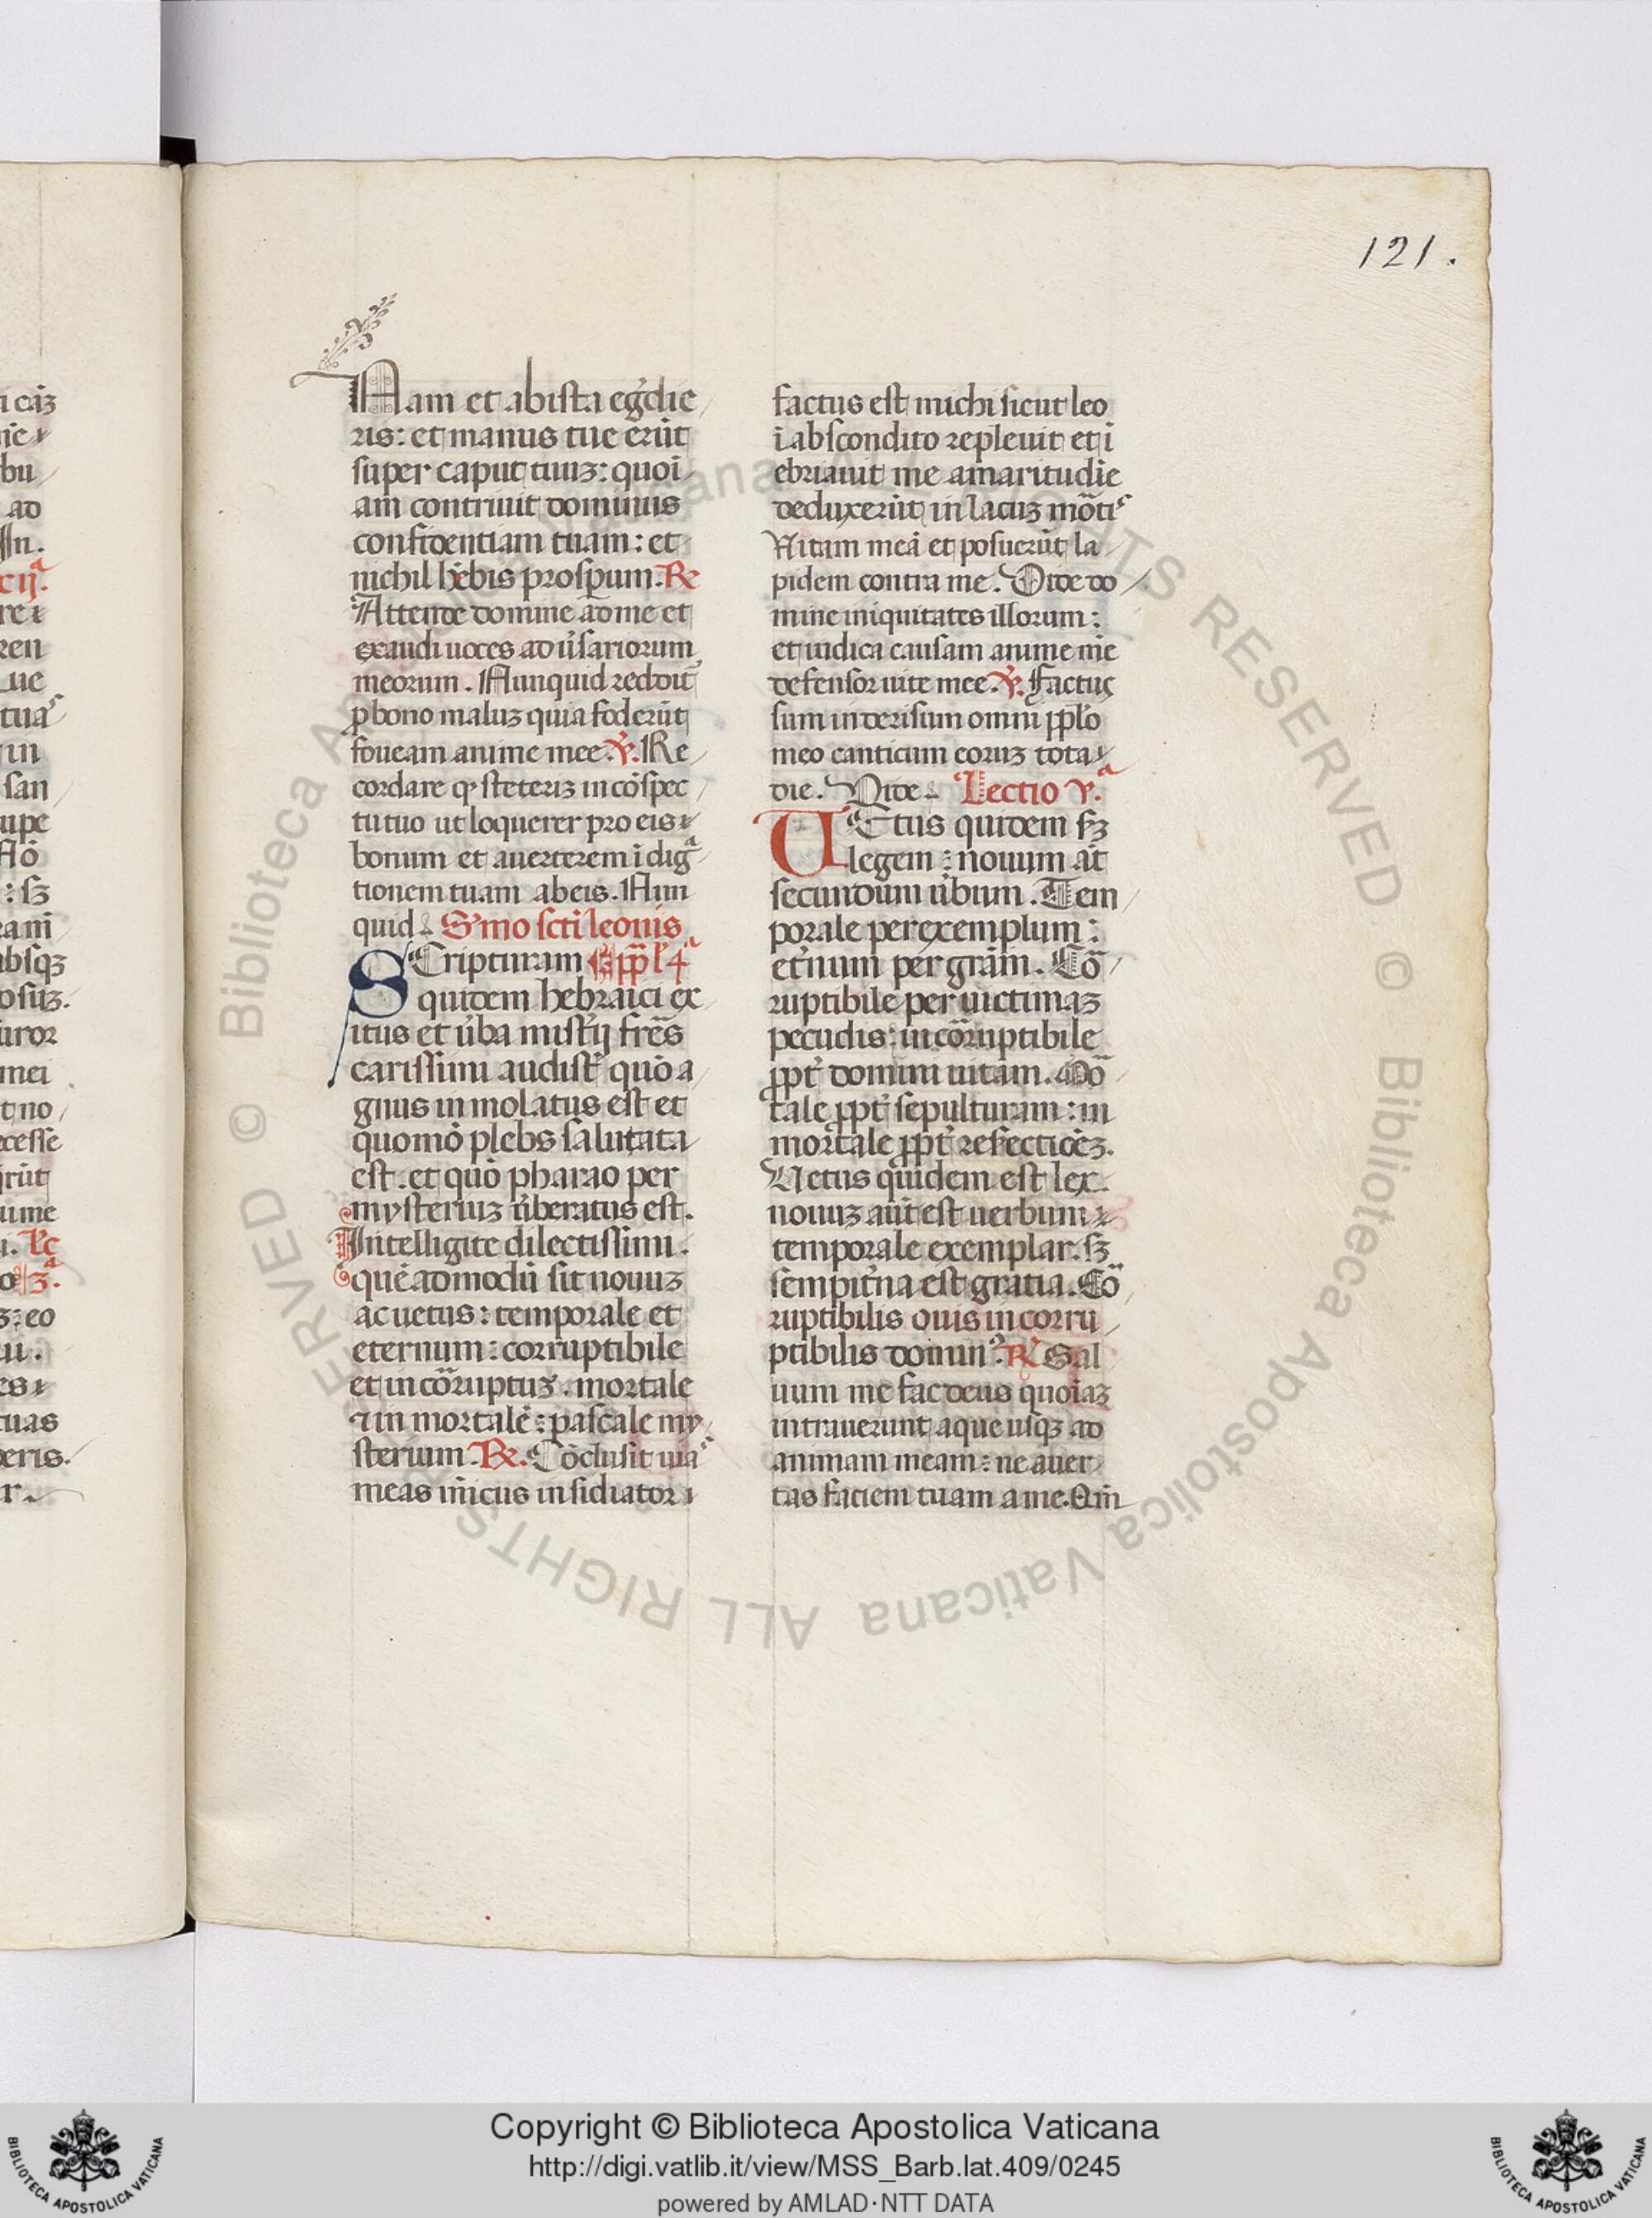 121.
Nam et ab ista eg̃die
ris: et manus tue erũt
super caput tuuꝫ: quoi
am contriuit dominus
confidentiam tuam: et
nichil hẽbis prosꝑum. R̃
Attende domine ad me et
exaudi uoces aduˀsariorum
meorum. Nunquid reddit̃
ꝓ bono maluꝫ quia foderũt
foueam anime mee. ℣. Re
cordare ꝙ steteriꝫ in cõspec
tu tuo ut loquerer pro eis
bonum et auerterem ĩdigᵃ
tionem tuam ab eis. Nun
quid Sˀmo scti leonis
SCripturam epp̃ l 4ᵃ
quidem hebraici ex
itus et uˀba mistˀij fre̅s
carissimi audistˀ quõ a
gnus inmolatus est et
quomõ plebs saluata
est. et quõ pharao per
mysteriuꝫ uˀberatus est.
Intelligite dilectissimi.
quẽadmodũ sit nouuꝫ
ac uetus: temporale et
eternum: corruptibile
et incõruptuꝫ. mortale
⁊ inmortale: pascale my
sterium. ℟. Cõclusit uiaˢ
meas inĩcus insidiator
factus est michi sicut leo
ĩ abscondito repleuit et ĩ
ebriauit me amaritudĩe
deduxerũt in lacuꝫ mõtiˢ
Uitam meã et posuerũt la
pidem contra me. Uide do
mine iniquitates illorum:
et iudica causam anime me
defensor uite mee. ℣. Factus
sum in derisum omni pp̃lo
meo canticum eoruꝫ tota
die. Uide Lectio vᵃ.
UEtus quidem sꝫ
legem: nouum aũt
secundum uˀbum. Tem
porale per exemplum:
etˀnum per gram̃. Cõ
ruptibile per uictimaꝫ
pecudis: incõruptibile
ꝓpt̃ domini uitam. Mõ
tale ꝓpt̃ sepulturam: in
mortale ꝓpt̃ refectiõeꝫ.
Uetus quidem est lex.
nouuꝫ aũt est uerbum
temporale exemplar. sꝫ
sempitˀna est gratia. Cõ
ruptibilis ouis incorru
ptibilis dominꝰ. ℟ Sal
uum me fac deus quoiaꝫ
intrauerunt aque usqꝫ ad
animam meam: ne auer
tas faciem tuam a me. Qm̃
Copyright © Biblioteca Apostolica Vaticana
http://digi.vatlib.it/view/MSS_Barb.lat.409/0245
powered by AMLAD·NTT DATA